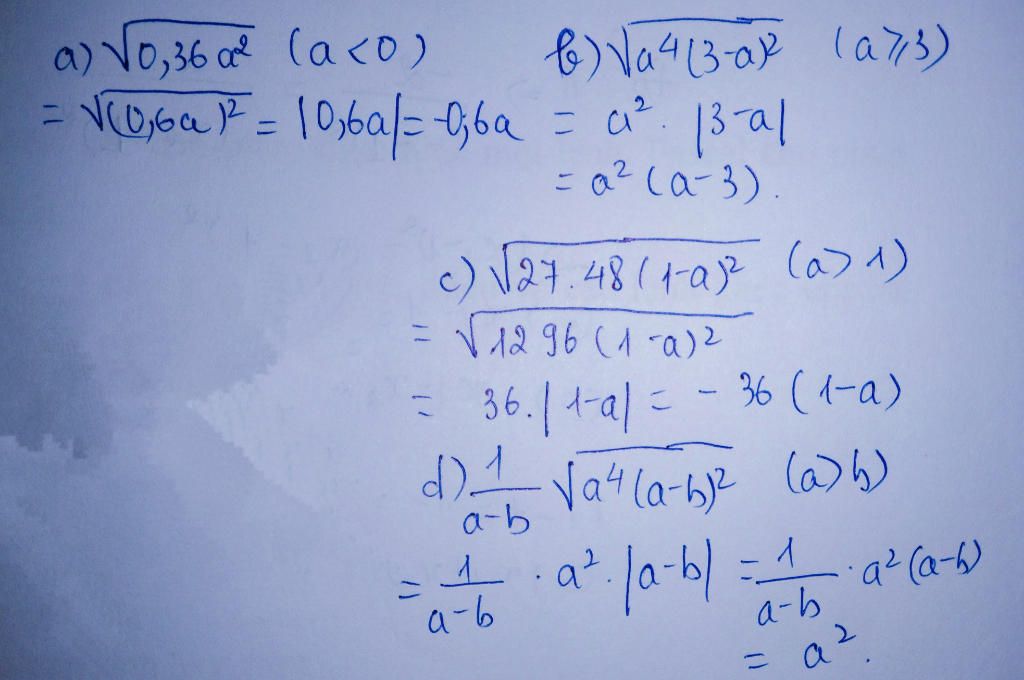 a) √0,36a² (a<0)
= √(0,6a)² = |0,6a| = -0,6a
b) √a⁴(3-a)² (a⩾3)
= a². |3-a|
= a²(a-3).
c) √27.48(1-a)² (a>1)
= √1296(1-a)²
= 36.|1-a| = -36(1-a)
d) 1/a-b √a⁴(a-b)² (a>b)
= 1/a-b . a².|a-b| = 1/a-b . a²(a-b)
= a².